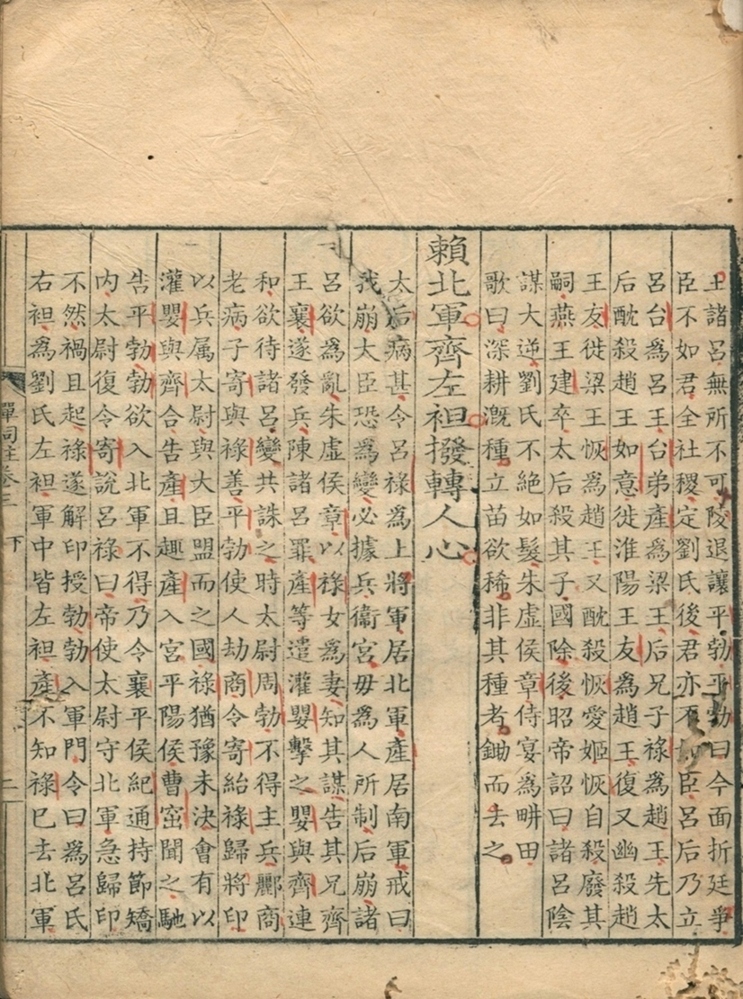 王諸呂無所不可陵退讓平勃平勃曰今面折廷爭
臣不如君全社稷定劉氏後君亦不如臣呂后乃立
呂台為呂王台弟產為梁王后兄子祿為趙王先太
后酖殺趙王如意徙淮陽王友為趙王復又幽殺趙
王友徙梁王恢為趙王又酖殺恢愛姬恢自殺廢其
嗣燕王建卒太后殺其子國除後昭帝詔曰諸呂陰
謀大逆劉氏不絕如髮朱虛侯章侍宴為畊田
歌曰深耕溉種立苗欲稀非其種者鋤而去之
賴北軍齊左袒撥轉人心
太后病甚令呂祿為上將軍居北軍產居南軍戒曰
我崩大臣恐為變必據兵衛宮毋為人所制后崩諸
呂欲為亂朱虛侯章以祿女為妻知其謀告其兄齊
王襄遂發兵陳諸呂罪產等遣灌嬰擊之嬰與齊連
和欲待諸呂變共誅之時太尉周勃不得主兵酈商
老病子寄與祿善平勃使人劫商令寄紿祿歸將印
以兵属太尉與大臣盟而之國祿猶豫未決會有以
灌嬰與齊合告產且趣產入宮平陽侯曹窋聞之馳
告平勃勃欲入北軍不得乃令襄平侯紀通持節矯
內太尉復令寄說呂祿曰帝使太尉守北軍急歸印
不然禍且起祿遂解印授勃勃入軍門令曰為呂氏
右袒為劉氏左袒軍中皆左袒產不知祿已去北軍
彈詞註卷三 下 二